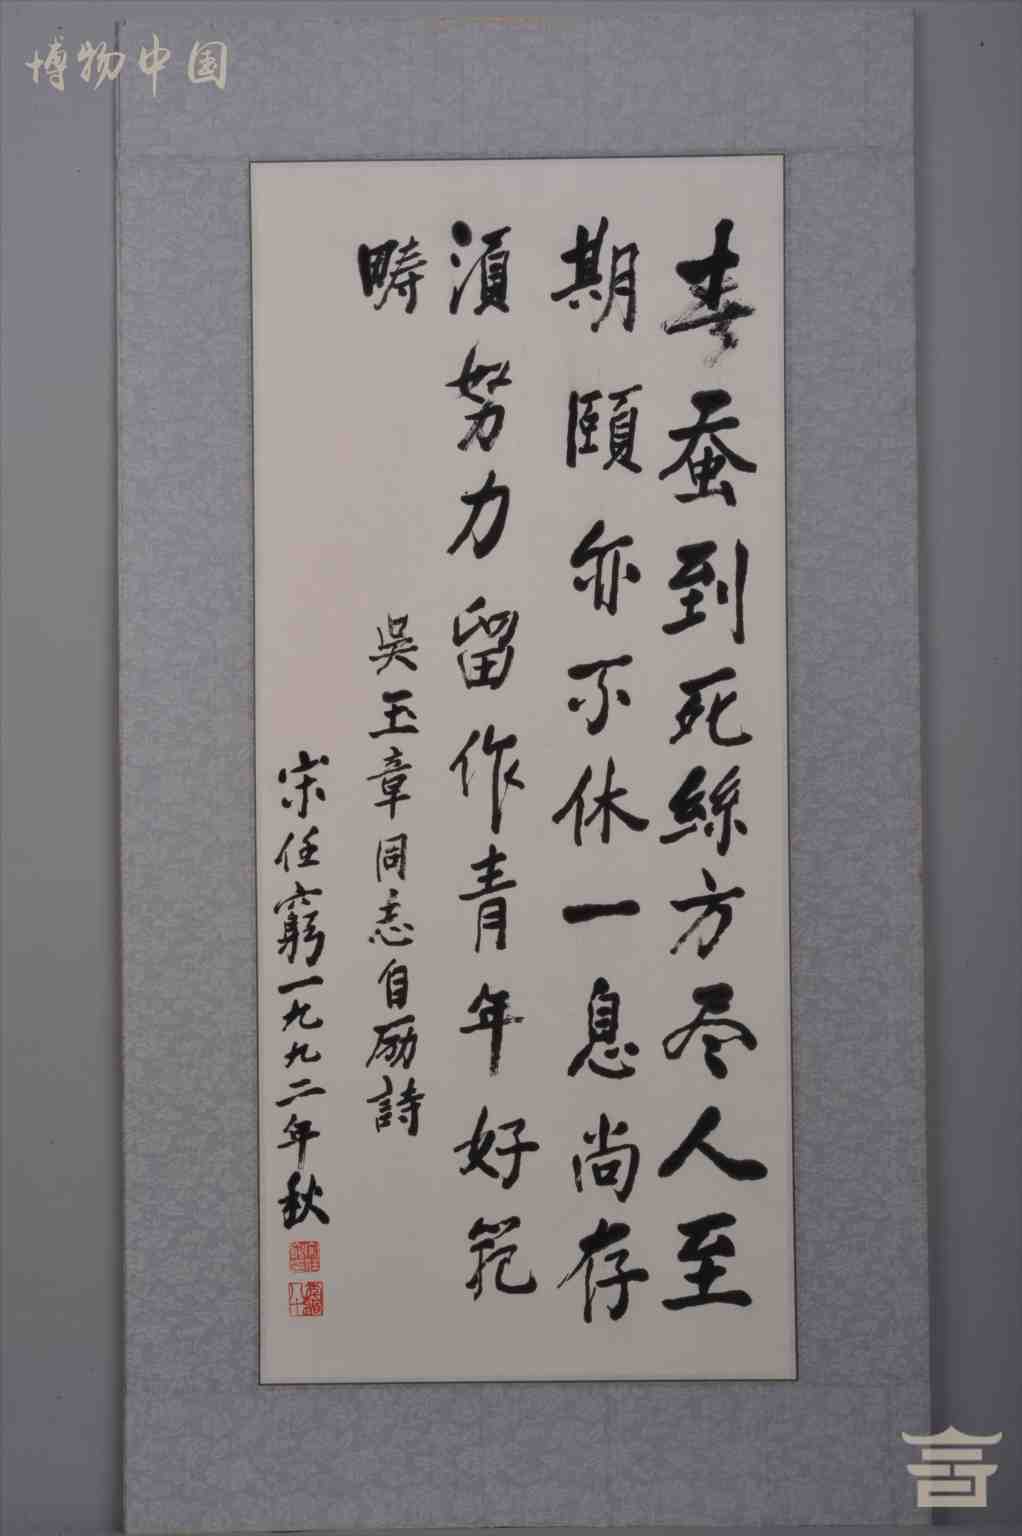 博物中国
春蚕到死絲方尽人至
期頤亦不休一息尚存
須努力留作青年好範
疇
吳玉章同志自励詩
宋任窮一九九二年秋